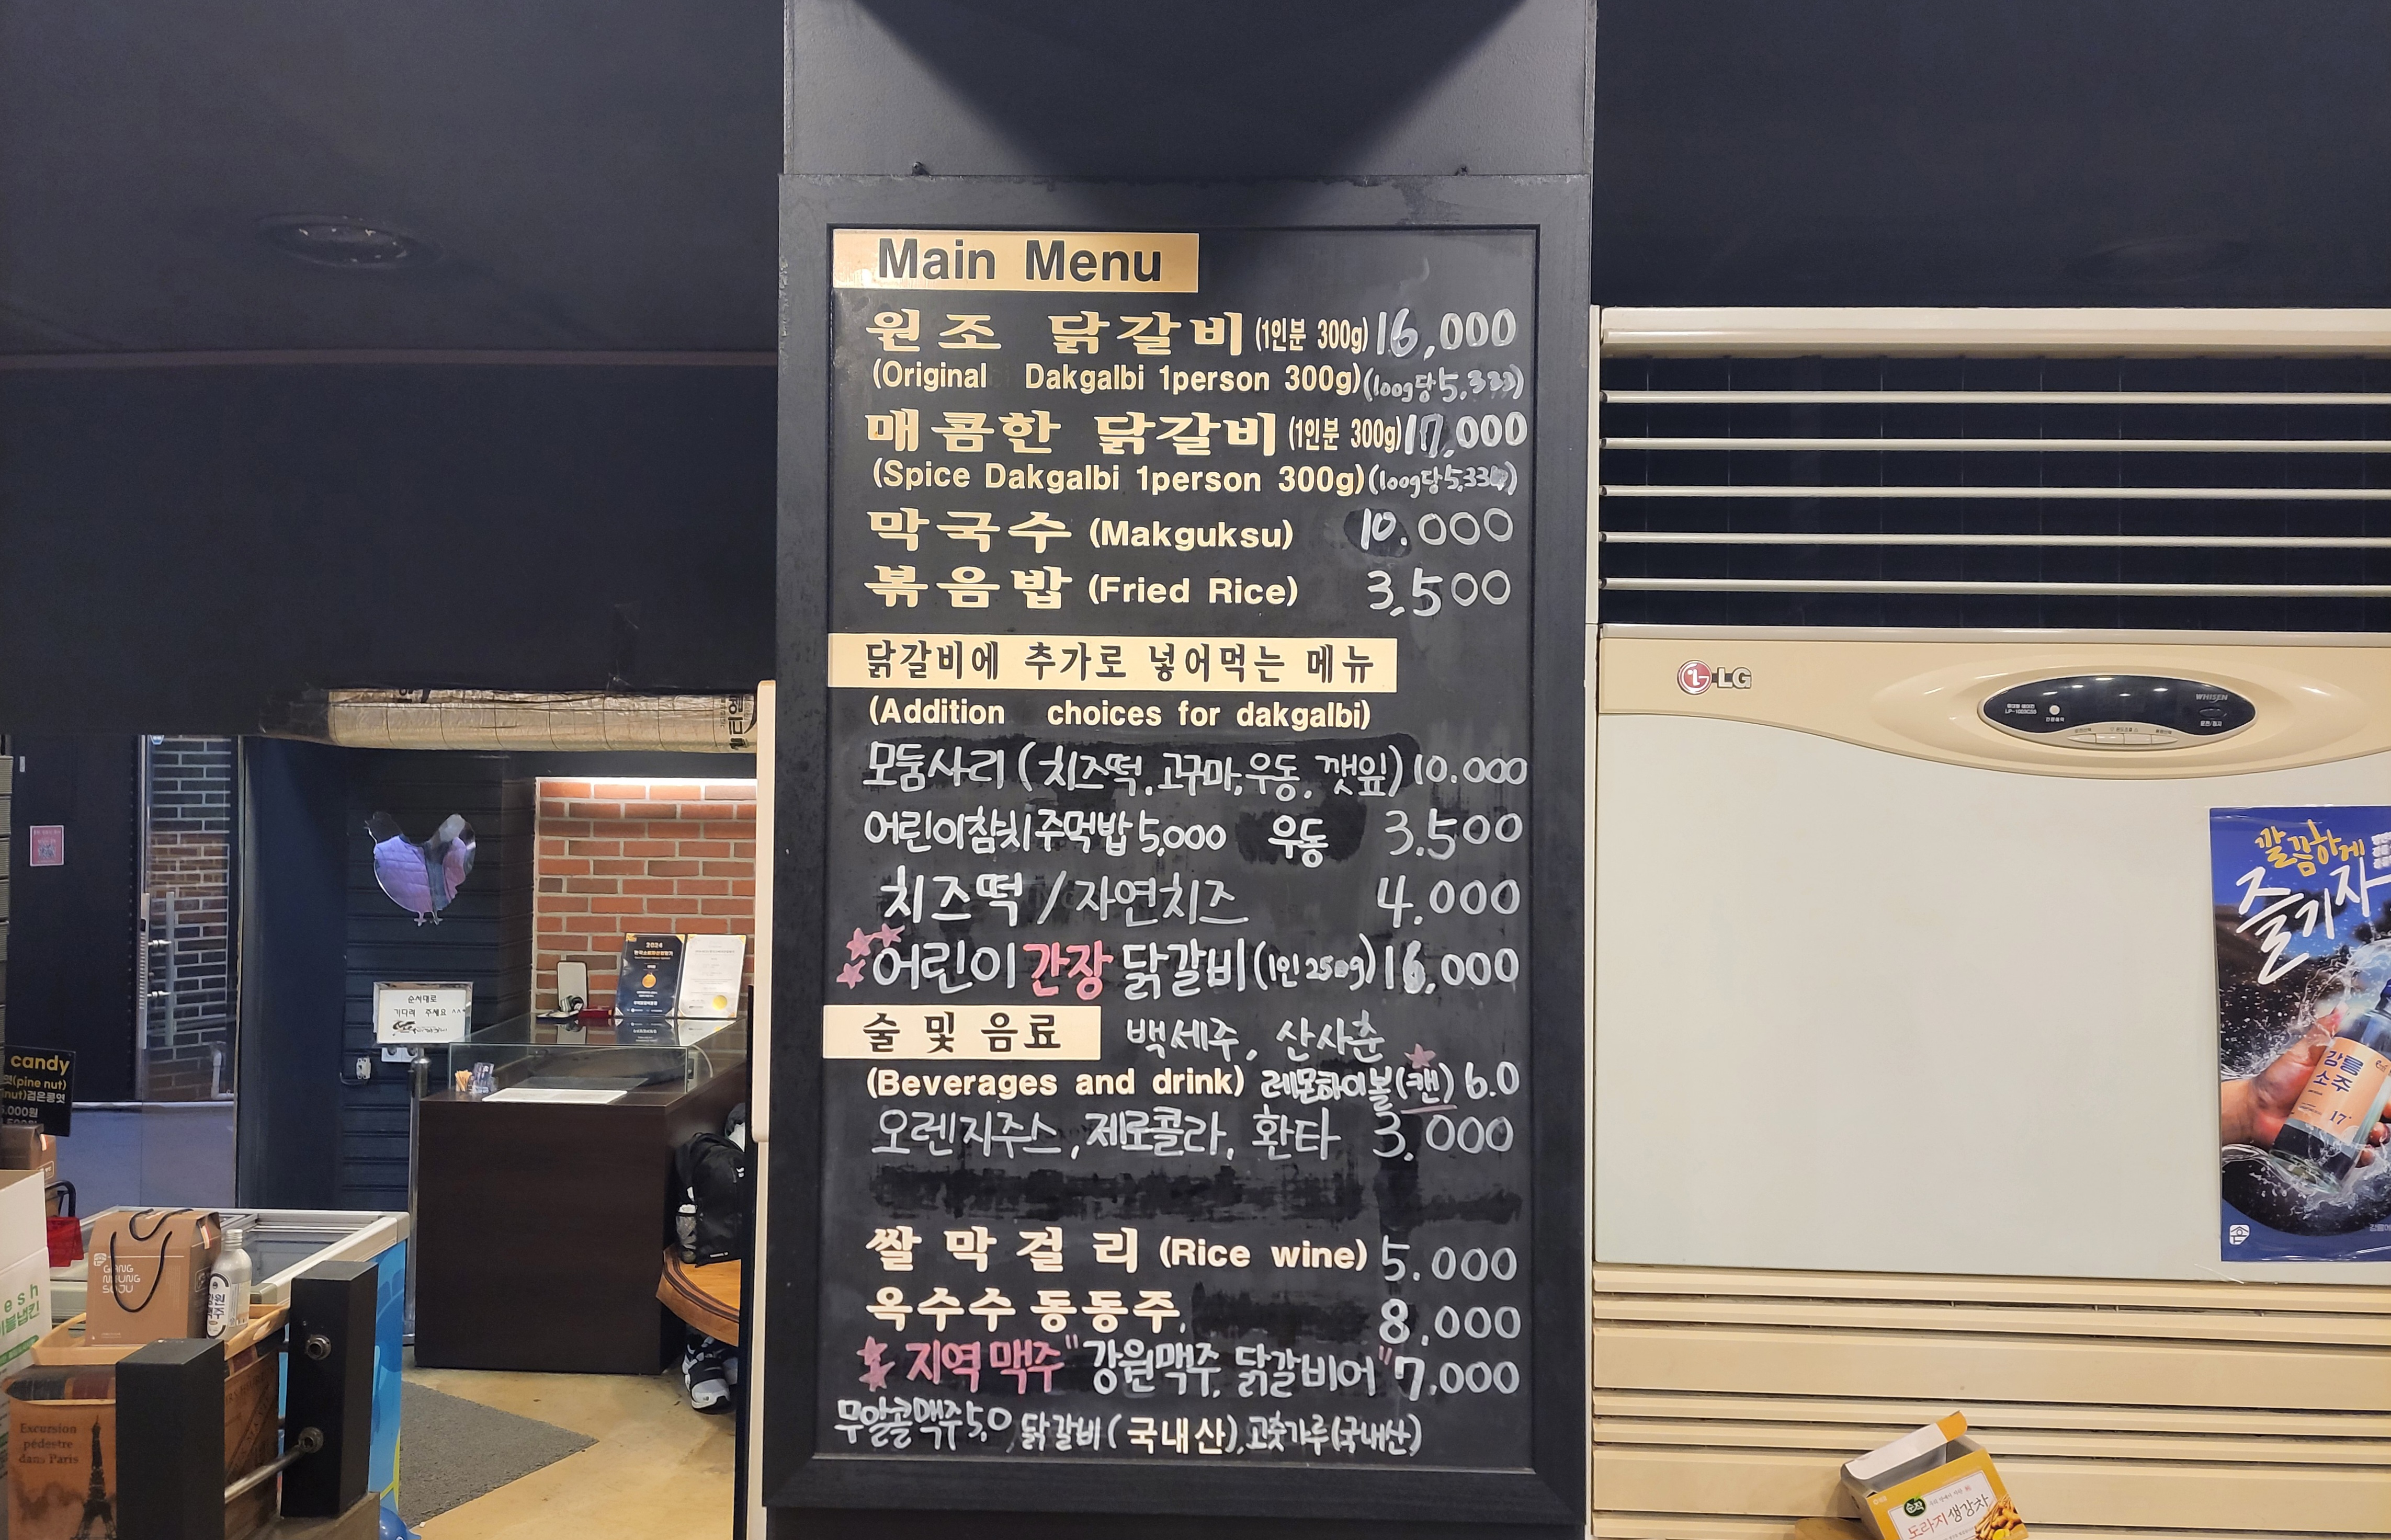 Main Menu
원조 닭갈비 (1인분 300g) 16,000
(Original Dakgalbi 1person 300g) (100g당 5,333)
매콤한 닭갈비 (1인분 300g) 17,000
(Spice Dakgalbi 1person 300g) (100g당
막국수 (Makguksu) 10.000
볶음밥 (Fried Rice) 3,500
닭갈비에 추가로 넣어먹는 메뉴
(Addition choices for dakgalbi)
모둠사리 (치즈떡, 고구마, 우동, 깻잎) 10.000
어린이참치주먹밥 5,000 우동 3.500
치즈떡 / 자연치즈 4.000
어린이 간장 닭갈비 (1인 250g) 16,000
술 및 음료 백세주, 산사춘
(Beverages and drink) 레몬하이볼(캔) 6.0
오렌지주스, 제로콜라, 환타 3.000
쌀막걸리 (Rice wine) 5.000
옥수수 동동주, 8,000
지역 맥주 "강원맥주, 닭갈비어" 7,000
무알콜맥주 5,0 닭갈비 (국내산), 고춧가루 (국내산)
LG
WHISEN
깔끔하게
즐기자
강릉
소주
17°
순서대로
기다려 주세요 ^^
2024
candy
(pine nut)
nut)검은콩엿
5.000원
GANG
NEUNG
SOJU
esh
Excursion
pédestre
dans Paris
도라지생강차